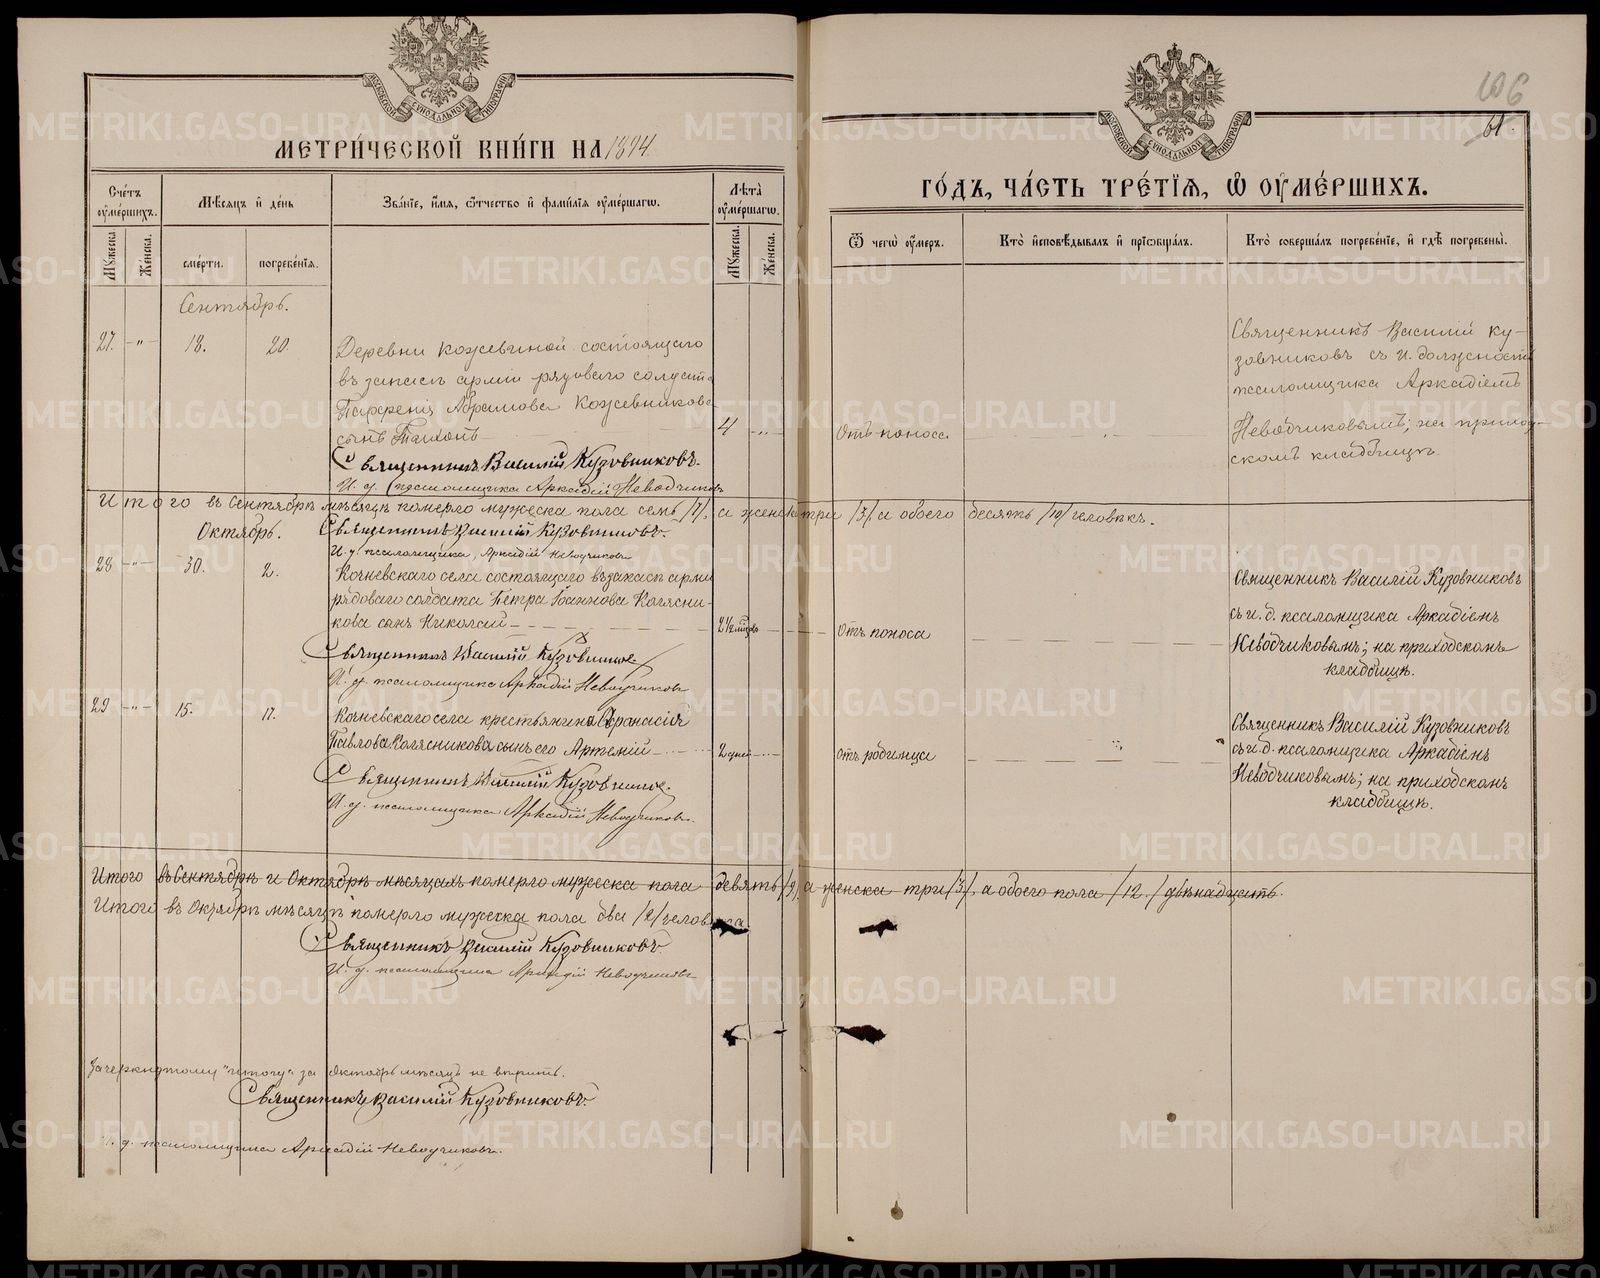 МОСКОВСКОЙ СѴНОДАЛЬНОЙ ТИПОГРАФІИ
МЕТРИ́ЧЕСКОЙ КНИ́ГИ НА 1894
Сче́тъ ᲂу҆ме́ршихъ.
Мѣ́сяцъ и҆ де́нь
Зва́нїе, и҆́мя, ѻ҆́тчество и҆ фами́лїя ᲂу҆ме́ршагѡ.
Лѣ́та ᲂу҆ме́ршагѡ.
Мꙋ́жеска.
Же́нска.
сме́рти.
погребе́нїя.
Мꙋ́жеска.
Же́нска.
Сентябрь.
27. -„- 18. 20.
Деревни Кожевиной состоящаго
въ запасѣ арміи рядоваго солдата
Парфенія Абрамова Кожевникова
сынъ Тихонъ 4 -„-
Священникъ Василій Кузовниковъ.
И. д. псаломщика Аркадій Неводчиковъ
Итого въ Сентябрѣ мѣсяцѣ померло мужеска пола семь /7/, а женска три /3/, а обоего десять /10/ человѣкъ.
Октябрь. Священникъ Василій Кузовниковъ.
И. д. псаломщика, Аркадій Неводчиковъ
28 -„- 30. 2.
Кочневскаго села состоящаго въ запасѣ арміи
рядоваго солдата Петра Іоаннова Колясни-
кова сынъ Николай 2½ мѣсяц
Священникъ Василій Кузовниковъ
И. д. псаломщика Аркадій Неводчиковъ
29 -„- 15. 17.
Кочневскаго села крестьянина Афанасія
Павлова Колясникова сынъ его Артемій 2 дней
Священникъ Василій Кузовниковъ.
И. д. псаломщика Аркадій Неводчиковъ.
Итого въ Сентябрѣ и Октябрѣ мѣсяцахъ померло мужеска пола девять /9/, а женска три /3/, а обоего пола /12./ двѣнадцать.
Итого въ Октябрѣ мѣсяцѣ померло мужеска пола два /2/ человѣка
Священникъ Василій Кузовниковъ
И. д. псаломщика Аркадій Неводчиковъ
Зачеркнутому "итогу" за Октябрь мѣсяцъ не вѣрить.
Священникъ Василій Кузовниковъ.
И. д. псаломщика Аркадій Неводчиковъ.
106
61.
МОСКОВСКОЙ СѴНОДАЛЬНОЙ ТИПОГРАФІИ
ГО́ДЪ, ЧА́СТЬ ТРЕ́ТЇЯ, Ѽ ОУ҆МЕ́РШИХЪ.
Ѿ чегѡ̀ ᲂу҆́меръ.
Кто̀ и҆сповѣ́дывалъ и҆ прїѡбща́лъ.
Кто̀ соверша́лъ погребе́нїе, и҆ гдѣ̀ погребены̀.
Отъ поноса
Священникъ Василій Ку-
зовниковъ съ и. должность
псаломщика Аркадіемъ
Неводчиковымъ; на приход-
скомъ кладбищѣ.
Отъ поноса
Священникъ Василій Кузовниковъ
съ и. д. псаломщика Аркадіемъ
Неводчиковымъ; на приходскомъ
кладбищѣ.
Отъ родимца
Священникъ Василій Кузовниковъ
съ и. д. псаломщика Аркадіемъ
Неводчиковымъ; на приходскомъ
кладбищѣ.
METRIKI.GASO-URAL.RU